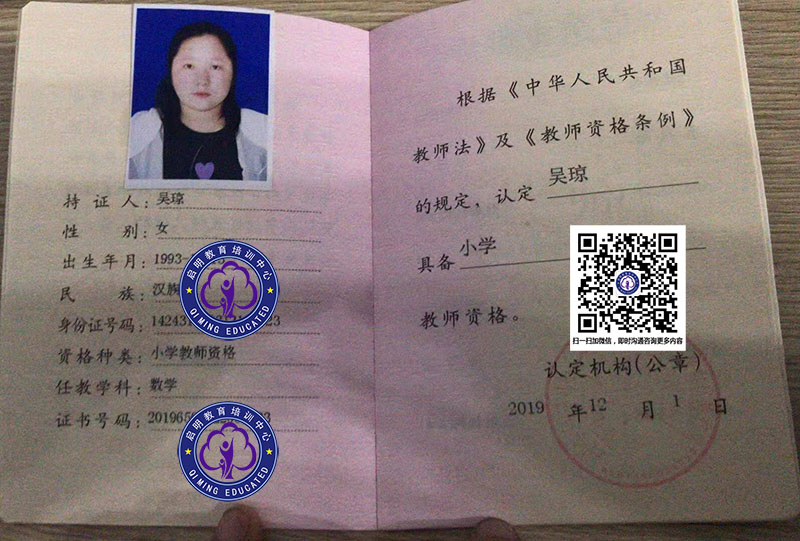 持证人：吴琼
性别：女
出生年月：1993
民族：汉族
身份证号码：14243 23
资格种类：小学教师资格
任教学科：数学
证书号码：20196 3
启明教育培训中心
QI MING EDUCATED
启明教育培训中心
QI MING EDUCATED
根据《中华人民共和国
教师法》及《教师资格条例》
的规定，认定 吴琼
具备 小学
教师资格。
扫一扫加微信，即时沟通咨询更多内容
认定机构(公章)
2019 年 12 月 1 日